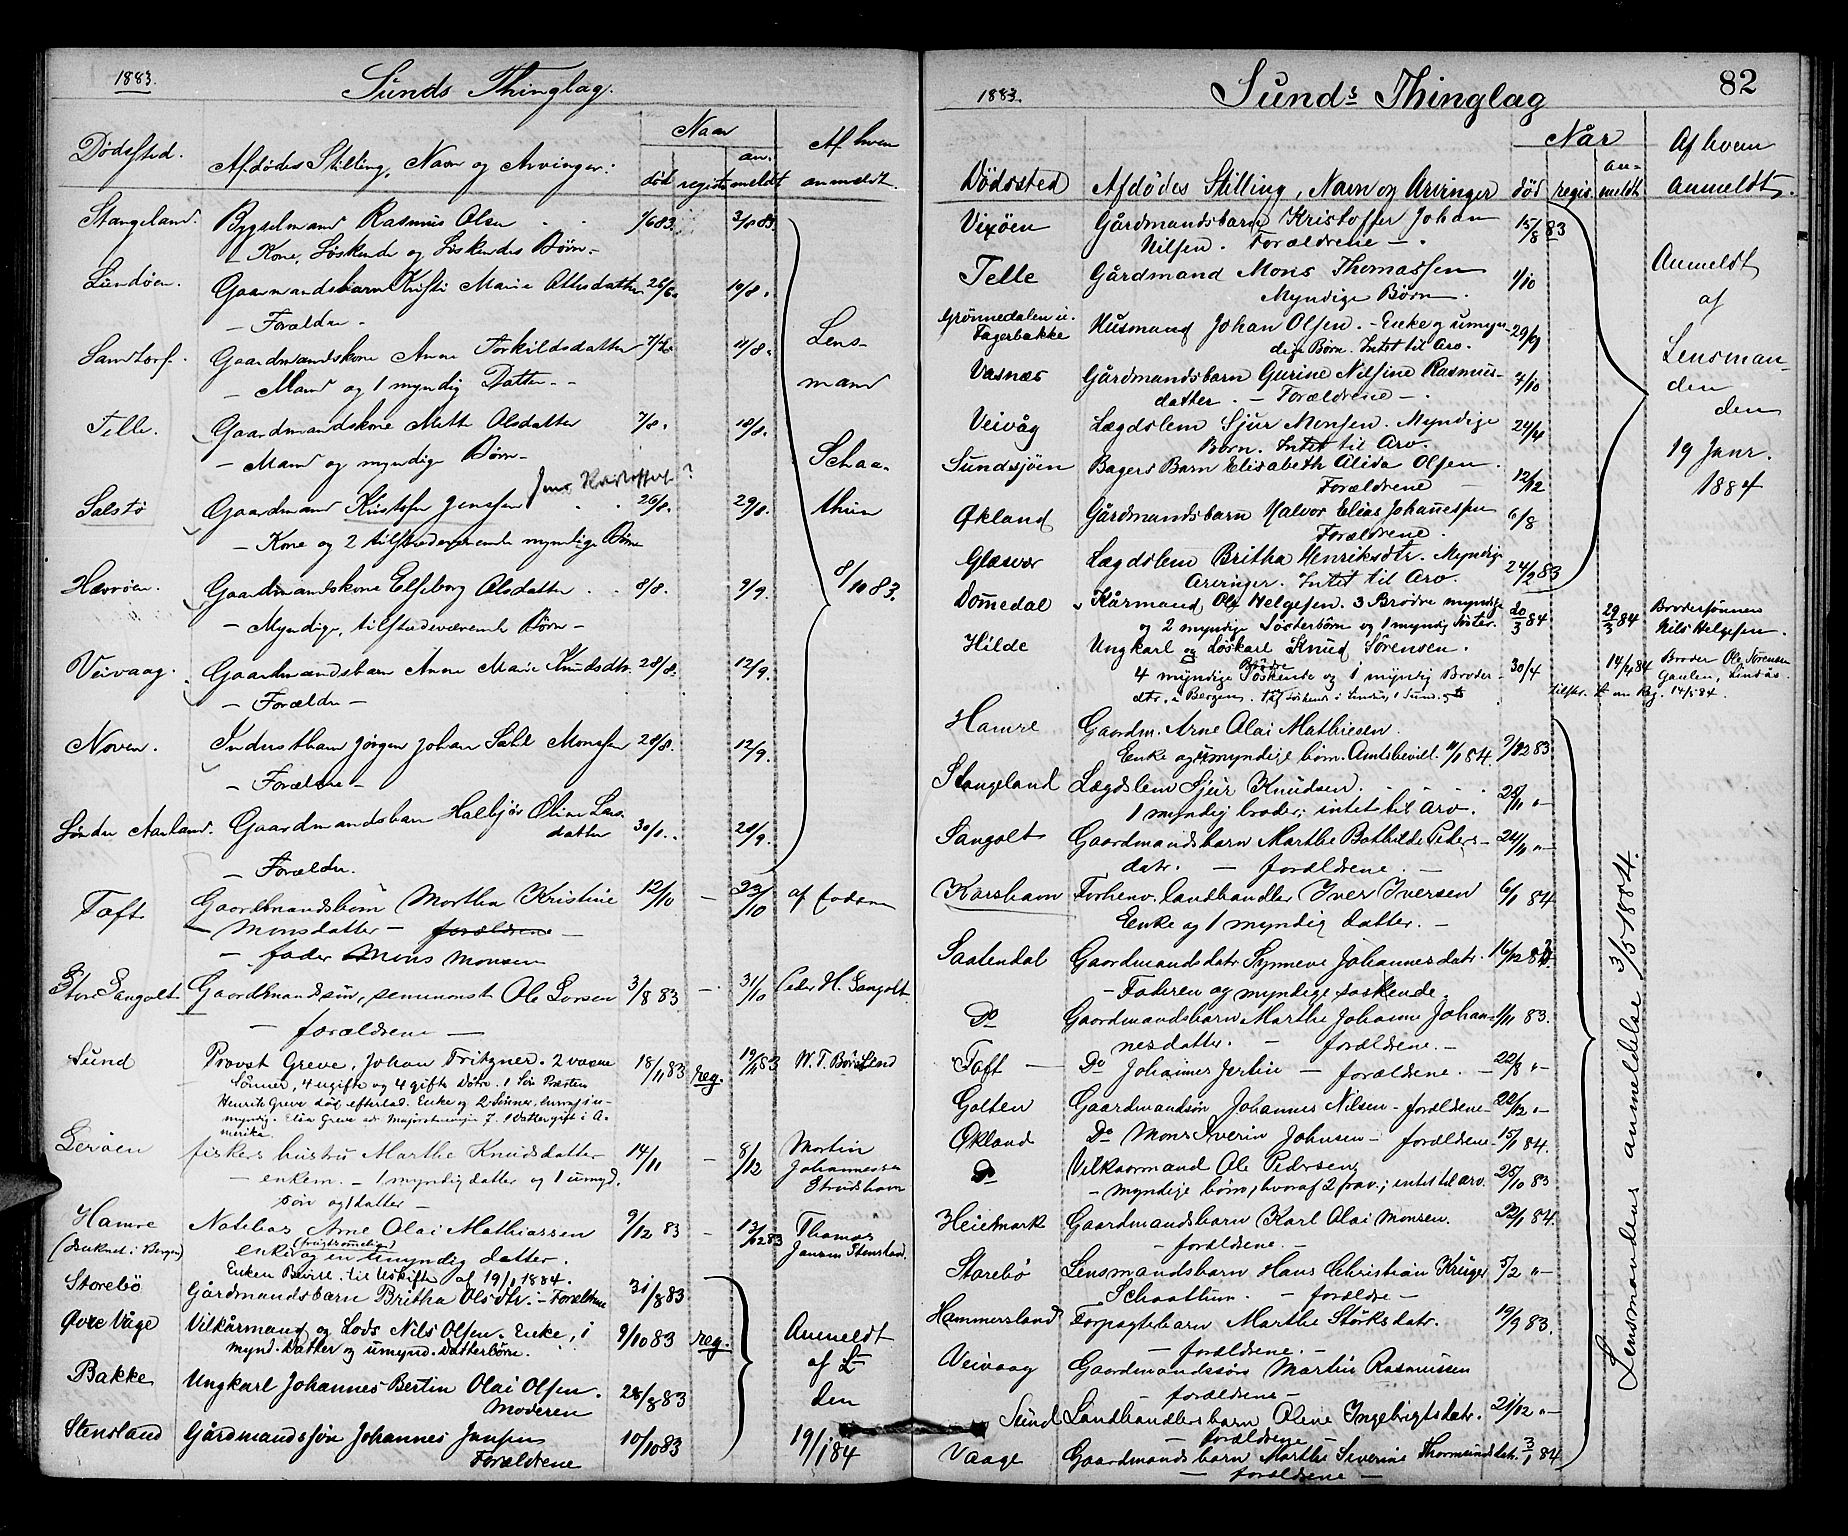 1883.
Sunds Thinglag.
Dødssted.
Afdødes Stilling, Navn og Arvinger:
Naar
død
registr
an-
meldt
Af hvem
anmeldt.
Stangeland. Bygselmand Rasmus Olsen 1/6 83. 3/8 83.
- Kone, Søskende og Søskendes Børn -
Lundøen. Gaarmandsbarn Kristi Marie Ottesdatter 26/6. 10/8.
- Forældre -
Samtorf. Gaardmandskone Anne Torkildsdatter 11/8.
- Mand og 1 myndig Datter -
Telle. Gaardmandskone Mette Olsdatter 7/8. 18/8.
- Mand og myndige Børn -
Jens Kristoffer?
Salstø Gaardmand Kristofer Jenssen 26/8. 29/8.
- Kone og 2 tilstedeværende myndige Børn
Hævrøen. Gaardmandskone Elseborg Olsdatter 8/8. 9/9.
- Myndige, tilstedeværende Børn -
Veivaag. Gaardmandsbarn Anne Marie Knudsdtr. 28/8. 12/9.
- Forældre -
Noven. Inderstbarn Jørgen Johan Monssen 28/8. 12/9.
- Forældre -
Søndre Aarland. Gaardmandsbarn Halbjør Oline Lars-
datter 30/8. 20/9.
- Forældre.
Lens-
mand
Schaa-
thun
8/10 83.
Toft Gaardmandsbørn Morthea Kristine 12/10 - 23/10 af faderen
- Monsdatter - forældrene -
- fader Mons Monsen
Store Sangolt Gaardmandsøn, seminarist Ole Larsen 3/8 83. - 31/10 Peder H. Sangolt.
- forældrene -
Sund Provst Greve, Johan Fritzner. 2 voxne 18/11 83 reg. 19/11 83 W. T. Børsland
Sønner, 4 ugifte og 4 gifte Døtre. 1 Søn Præsten
Henrik Greve død efterlad. Enke og 2 Sønner, hvoraf 1 u-
myndig. Elia Greve
merika.
Lerøen fiskers hustru Marthe Knudsdatter 14/11 - 8/12 Mortin
Johannessen
- enkem. - 1 myndig datter og 1 umyd.
søn og datter -
Hamre Notebas Arne Olai Mathiassen 9/12 83 13/12 83 Thomas
Jansen Stensland.
(druknet i Bergen) enke og en umyndig datter.
Enken Bevill. til Uskifte af 19/1 1884.
Storebø Gårdmandsbarn Britha Olsdtr. - Forældrene 31/8 83
Øvre Våge Vilkårmand og Lods Nils Olsen. Enke, 1 9/10 83 reg.
mynd. Datter og umynd. Datterbørn.
Bakke Ungkarl Johannes Bertin Olai Olsen. 28/8 83
Moderen
Stensland Gårdmandssøn Johannes Jansen 10/10 83
Forældrene
Anmeldt
af L
den
19/1 84
82
1883.
Sunds Thinglag
Dødssted
Afdødes Stilling, Navn og Arvinger
Når
død
regis.
an-
meldt
Af hvem
Anmeldt.
Vixøen Gårdmandsbarn Kristoffer Johan 15/8 83
Nilsen. Forældrene -.
Telle Gårdmand Mons Thomassen 1/10
Myndige Børn.
Grønnedalen u. Husmand Johan Olsen. - Enke og umyn- 29/9
Fagerbakke dige Børn. Intet til Arv.
Vasnæs Gårdmandsbarn Gurine Nilsine Rasmus- 4/10
datter. - Forældrene -.
Veivåg Lægdslem Sjur Monsen. Myndige 24/4
Børn. Intet til Arv.
Sundsjøen Bagers Barn Elisabeth Alida Olsen. 12/12
Forældrene -
Økland Gårdmandsbarn Halvor Elias Johannessen 6/8
Forældrene.
Glæsvær Lægdslem Britha Henriksdtr. Myndige 24/9 83
Arvinger. Intet til Arv.
Anmeldt
af
Lensman-
den
den
19 Janr.
1884
Dommedal Kårmand, Ole Helgesen. 3 Brødre myndige 20/3 84 29/3 84 Brodersønnen
og 2 myndige Søsterbørn og 1 myndig Søster. Nils Helgesen.
Hilde Ungkarl og Løskarl Knud Sørensen.
4 myndige Søskende og 1 myndig Broder- 30/4 14/5 84 Broder Ole Sørensen
Brødre
dtr. i Bergen. Gaulen, Lindås.
Hamre Gaardm. Arne Olai Mathiesen.
Enke og umyndige børn. Amtsbevill. 11/1 84. 9/12 83
Stangeland Lægdslem Sjur Knudsen. 25/11 "
1 myndig broder; intet til arv.
Sangolt Gaardmandsbarn Marthe Bothilde Peders- 24/11 "
datr. - forældrene. -
Karshavn Forhenv. landhandler Iver Iversen 6/1 84
Enke og 1 myndig datter. -
Saatendal Gaardmandsdatr. Synneve Johannesdatr. 16/12 83
- Faderen og myndige søskende.
Do Gaardmandsbarn Marthe Johanne Johan- 1/11 83.
nesdatter. - forældrene. -
Toft - Do Johannes Jertin - forældrene. 22/8 "
Golten Gaardmandsøn Johannes Nilsen - forældrene - 22/12 "
Økland Do Mons Severin Johnsen - forældrene - 15/1 84.
Do Vilkaarmand Ole Pedersen 25/10 83
- myndige børn, hvoraf 2 frav.; intet til arv.
Heiemark Gaardmandsbarn Karl Olai Monsen. 22/1 84.
- forældrene. -
Storebø Lensmandsbarn Hans Christian Krüger 5/2 "
Schaathum. - forældre -
Hammersland Forpagterbarn Marthe Størksdatr. 19/9 83.
- forældrene. -
Veivaag Gaardmandssøn Martin Rasmussen
- forældrene -
Sund Landhandlersbarn Oline Ingebrigtsdatr. 21/12 "
- forældrene -
Vaage Gaardmandsbarn Marthe Severine Thormundsdatr. 3/1 84
- forældrene -
Lensmandens anmeldelse 3/5 1884.